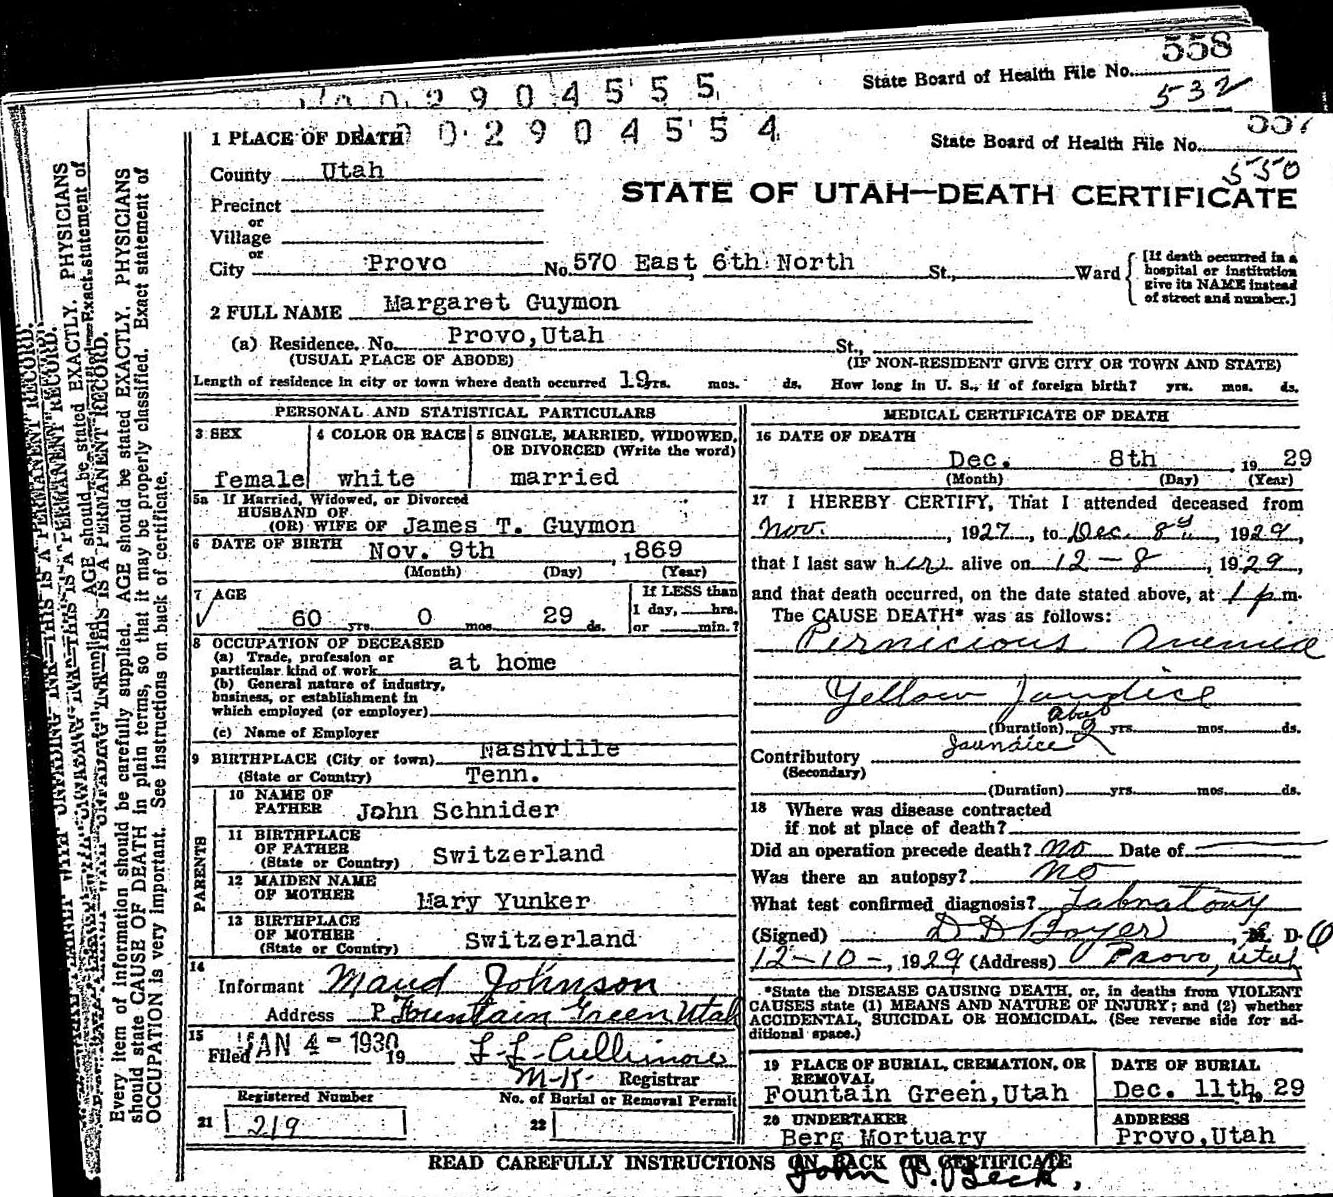 558
State Board of Health File No.
532
0 2 9 0 4 5 5 5
0 0 2 9 0 4 5 5 4
State Board of Health File No.
550
STATE OF UTAH—DEATH CERTIFICATE
1 PLACE OF DEATH
County Utah
Precinct
or
Village
or
City Provo No. 570 East, 6th North St., Ward
[If death occurred in a hospital or institution give its NAME instead of street and number.]
2 FULL NAME Margaret Guymon
(a) Residence. No. Provo, Utah St.,
(USUAL PLACE OF ABODE) (IF NON-RESIDENT GIVE CITY OR TOWN AND STATE)
Length of residence in city or town where death occurred 19 yrs. mos. ds. How long in U. S., if of foreign birth? yrs. mos. ds.
PERSONAL AND STATISTICAL PARTICULARS
3 SEX
female
4 COLOR OR RACE
white
5 SINGLE, MARRIED, WIDOWED,
OR DIVORCED (Write the word)
married
5a If Married, Widowed, or Divorced
HUSBAND OF
(OR) WIFE OF James T. Guymon
6 DATE OF BIRTH Nov. 9th ,1869
(Month) (Day) (Year)
7 AGE
60 yrs. 0 mos. 29 ds.
If LESS than
1 day, hrs.
or min.?
8 OCCUPATION OF DECEASED
(a) Trade, profession or
particular kind of work at home
(b) General nature of industry,
business, or establishment in
which employed (or employer)
(c) Name of Employer
9 BIRTHPLACE (City or town) Nashville
(State or Country) Tenn.
PARENTS
10 NAME OF
FATHER John Schnider
11 BIRTHPLACE
OF FATHER
(State or Country) Switzerland
12 MAIDEN NAME
OF MOTHER Mary Yunker
13 BIRTHPLACE
OF MOTHER
(State or Country) Switzerland
14
Informant Maud Johnson
Address Fountain Green Utah
15
Filed JAN 4 - 1930 19 L. L. Cullimore
M-K- Registrar
Registered Number No. of Burial or Removal Permit
21 219 22
MEDICAL CERTIFICATE OF DEATH
16 DATE OF DEATH
Dec. 8th , 19 29
(Month) (Day) (Year)
17 I HEREBY CERTIFY, That I attended deceased from
Nov. , 1927, to Dec. 8th, 1929,
that I last saw her alive on 12-8, 1929,
and that death occurred, on the date stated above, at 1 p m.
The CAUSE DEATH* was as follows:
Pernicious Anemia
Yellow Jaundice
(Duration) about 2 yrs. mos. ds.
Contributory Jaundice
(Secondary)
(Duration) yrs. mos. ds.
18 Where was disease contracted
if not at place of death?
Did an operation precede death? no Date of
Was there an autopsy? no
What test confirmed diagnosis? Labratory
(Signed) D D Boyer , M. D. O
12-10-, 1929 (Address) Provo, Utah
*State the DISEASE CAUSING DEATH, or, in deaths from VIOLENT
CAUSES state (1) MEANS AND NATURE OF INJURY; and (2) whether
ACCIDENTAL, SUICIDAL OR HOMICIDAL. (See reverse side for ad-
ditional space.)
19 PLACE OF BURIAL, CREMATION, OR
REMOVAL
Fountain Green, Utah
DATE OF BURIAL
Dec. 11th, 19 29
20 UNDERTAKER
Berg Mortuary
ADDRESS
Provo, Utah
READ CAREFULLY INSTRUCTIONS ON BACK OF CERTIFICATE
John P. Beck.
Every item of information should be carefully supplied. AGE should be stated EXACTLY. PHYSICIANS
should state CAUSE OF DEATH in plain terms, so that it may be properly classified. Exact statement of
OCCUPATION is very important. See instructions on back of certificate.